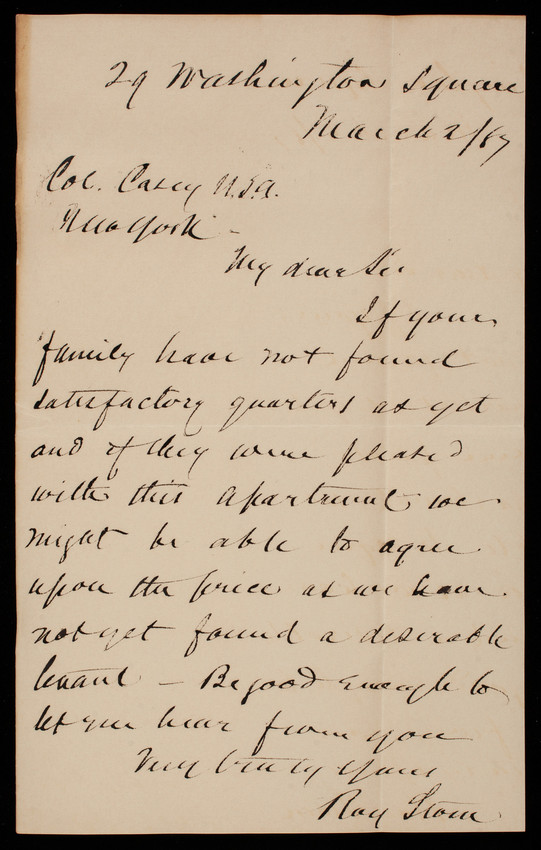 29 Washington Square
March 2/87
Col. Casey U.S.A.
New York -
My dear Sir
If your
family have not found
satisfactory quarters as yet
and if they were pleased
with this apartment, we
might be able to agree
upon the price as we have
not yet found a desirable
tenant - Be good enough to
let me hear from you
Very truly yours
Roy Stone